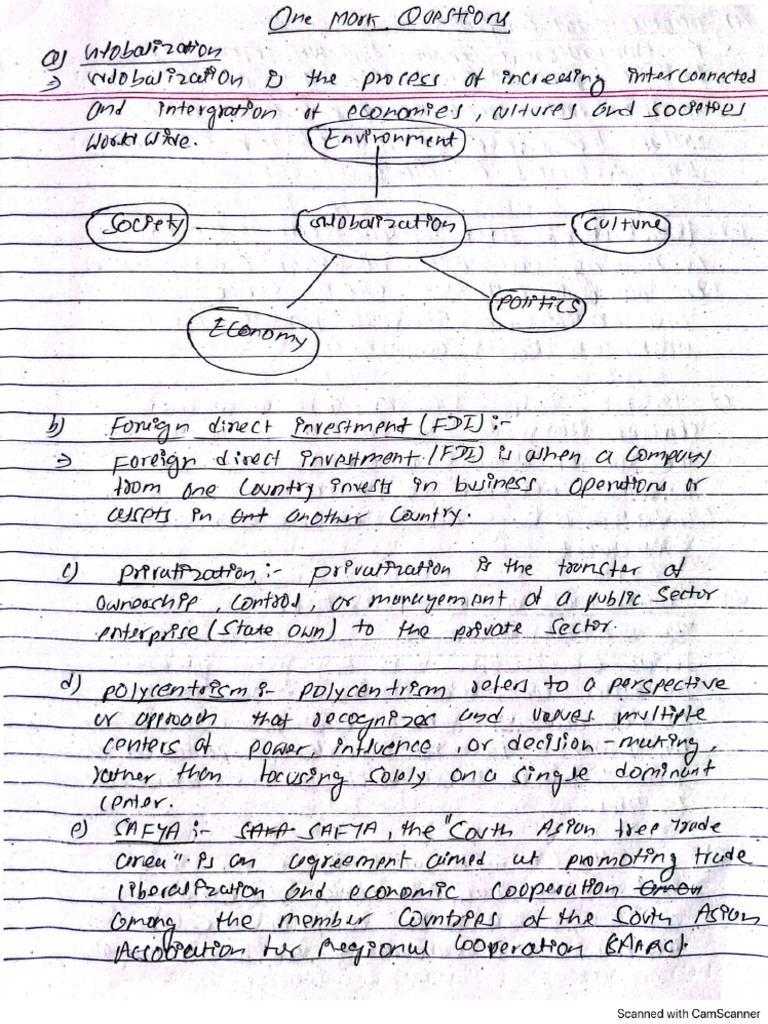 One Mark Questions
a) Globalization
⇒ Globalization is the process of increasing interconnected
and intergration of economies, cultures and societies
world wire.
Environment
Society
Globalization
Culture
Economy
Politics
b) Foreign direct investment (FDI) :-
⇒ Foreign direct investment (FDI) is when a company
from one country invests in business operations or
assets in ent another country.
c) Privatization :- Privatization is the transfer of
ownership, control, or management of a public sector
enterprise (State own) to the private sector.
d) Polycentrism :- Polycentrism refers to a perspective
or approach that recognizes and values multiple
centers of power, influence, or decision-making,
rather than focusing solely on a single dominant
center.
e) SAFTA :- SAFTA, the "South Asian free trade
area" is an agreement aimed at promoting trade
liberalization and economic cooperation
among the member countries of the South Asian
Association for Regional Cooperation (SAARC).
Scanned with CamScanner